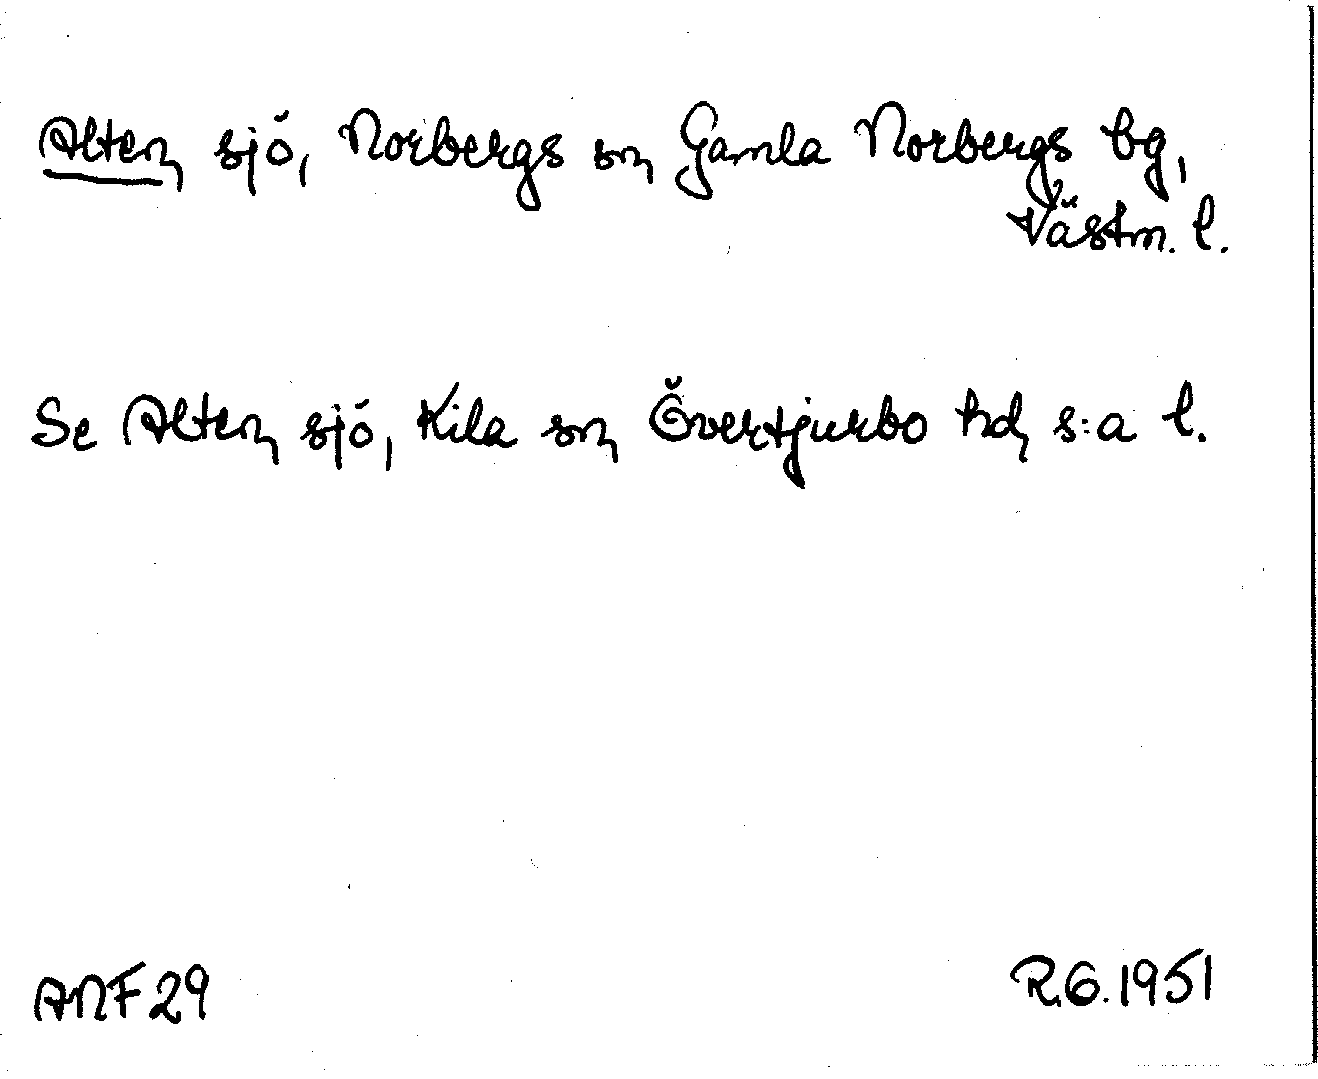 Alten sjö, Norbergs sn Gamla Norbergs bg,
Västm. l.
Se Alten sjö, Kila sn Övertjurbo hd s:a l.
ANF 29
R.G. 1951